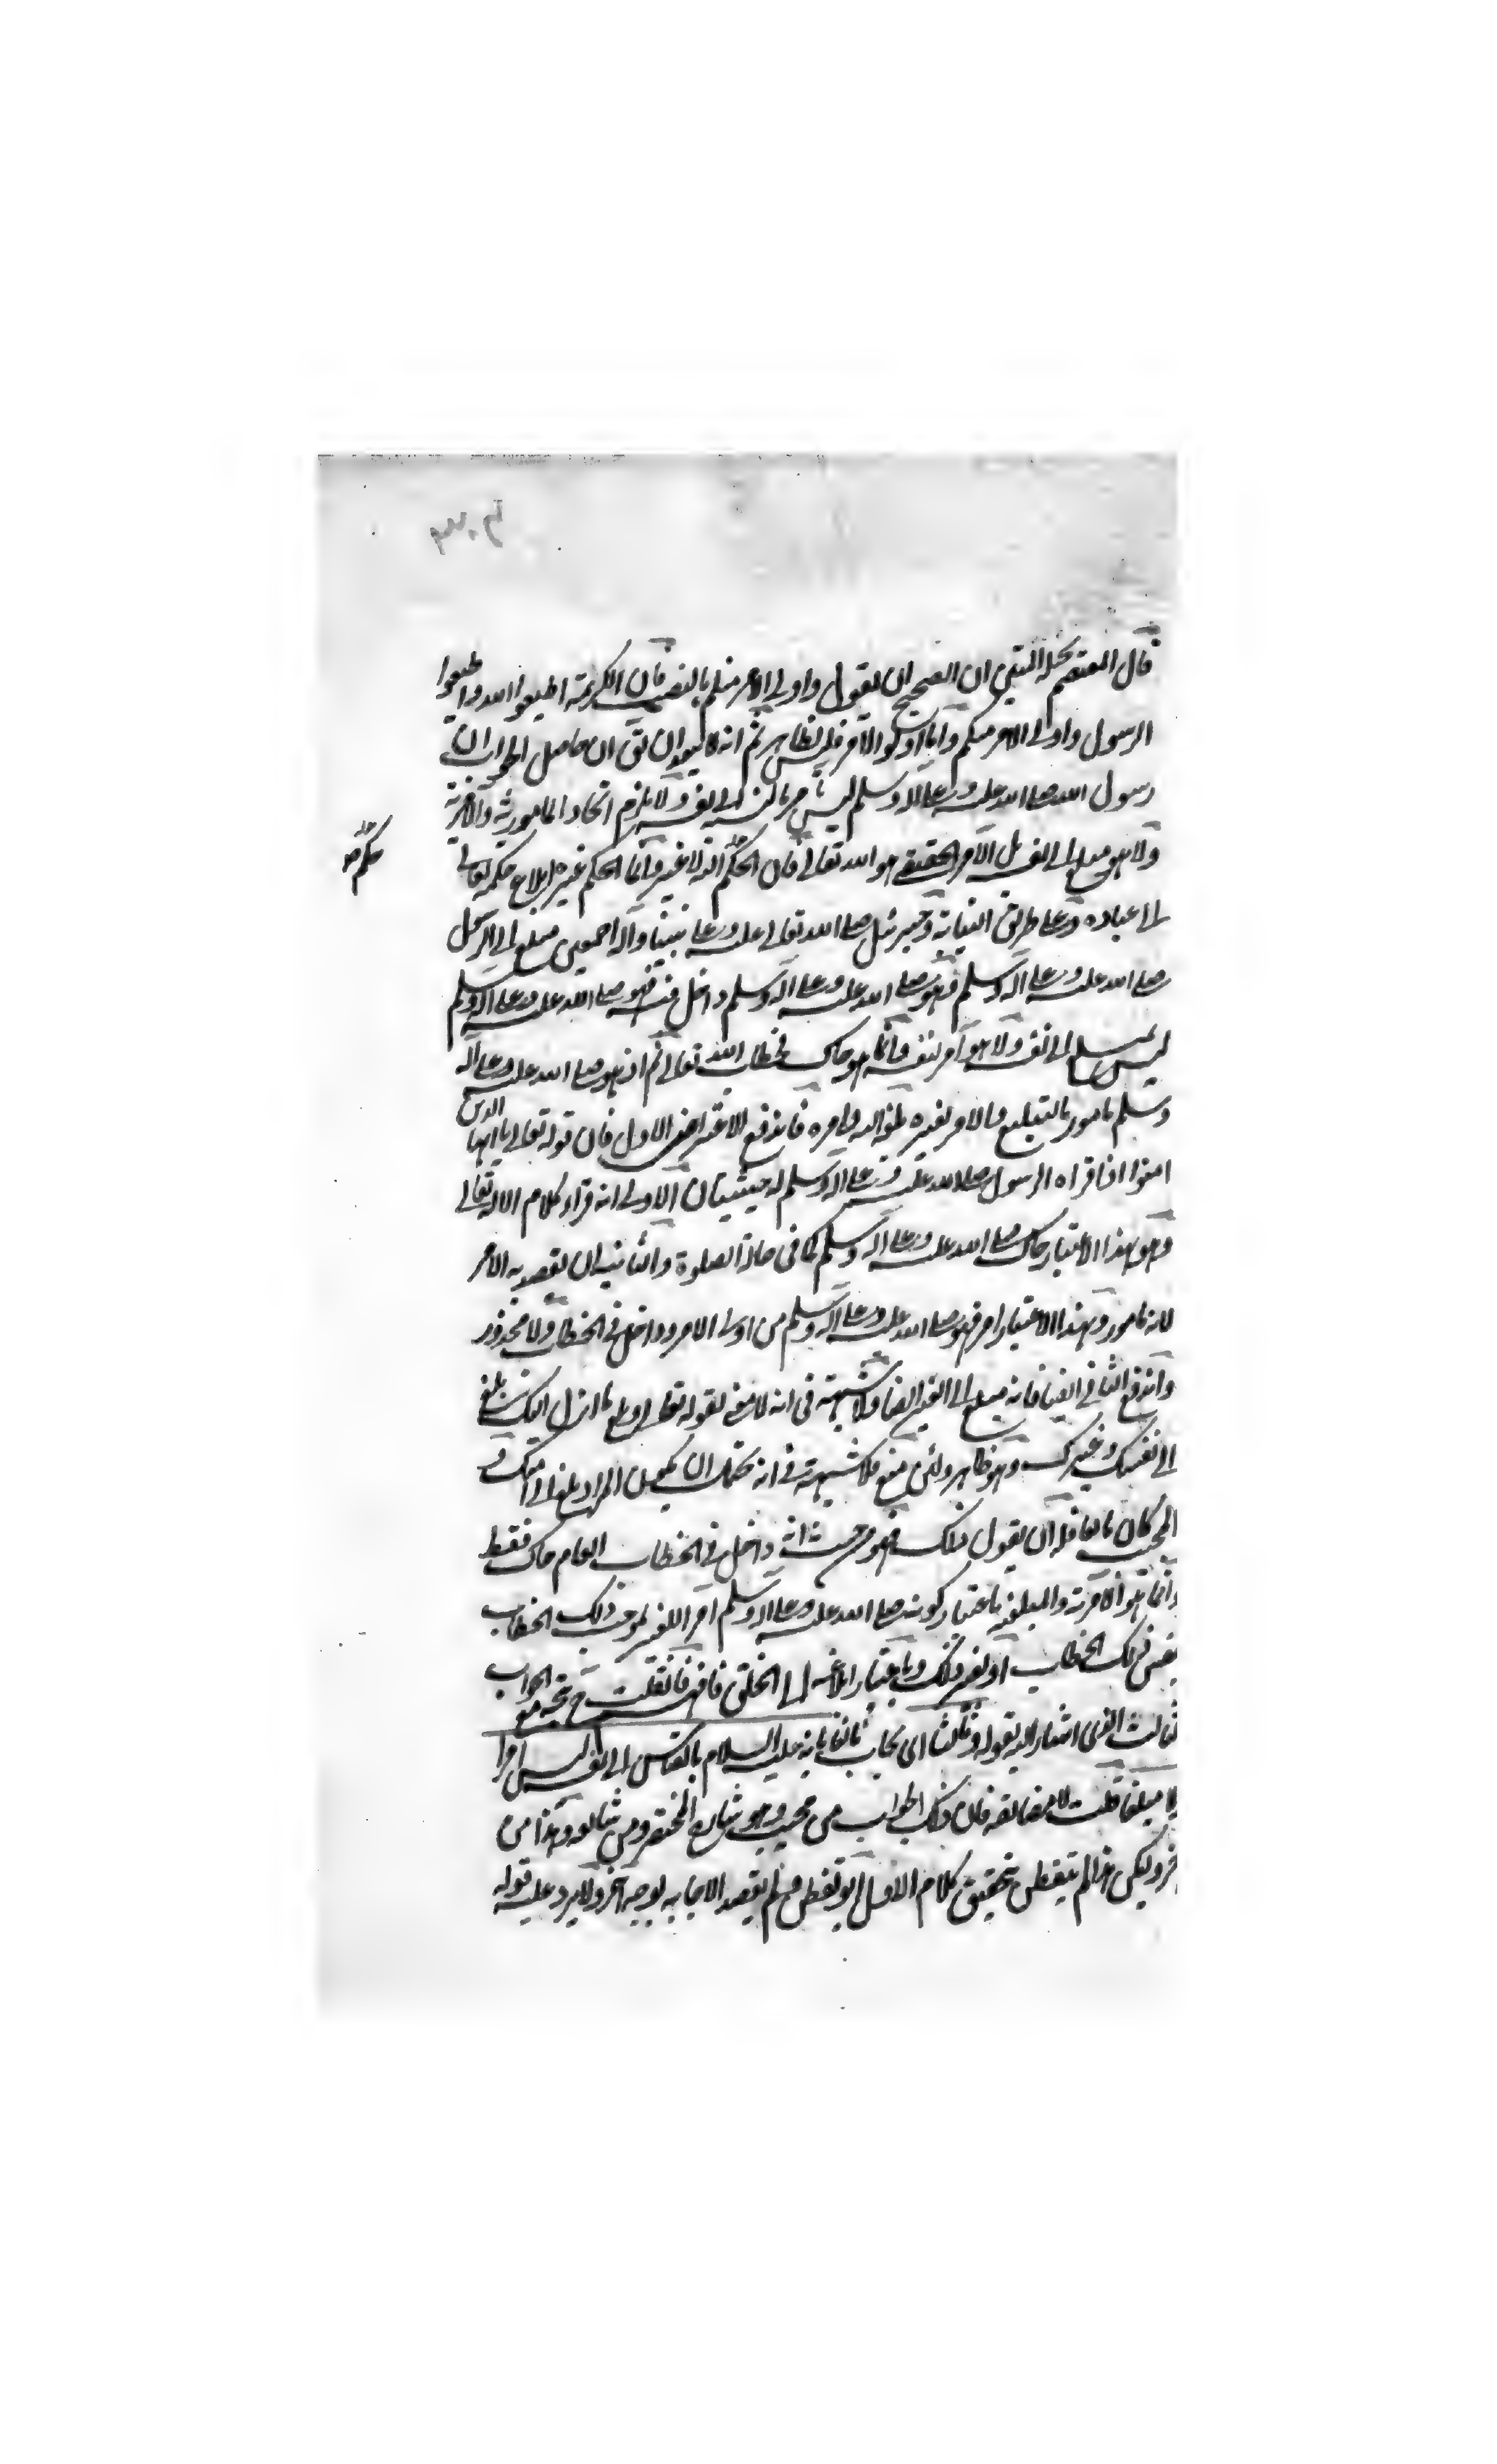 قال المعتصم بحبله المتين ان الصحيح ان يقول واولي الامر منكم بالنصب فان الكريمة اطيعوا الله واطيعوا
الرسول واولي الامر منكم واما اولو الامر فليس بظاهر ثم انه لا يبعد ان يق ان حاصل الجواب ان
رسول الله صلى الله عليه وعلى آله وسلم ليس بآمر بالنسبة الى نفسه ولا يلزم اتحاد المامورية والآمرية
ولا هو مبلغ الى نفسه بل الآمر الحقيقي هو الله تعالى فان الحكم لله لا غير وانما الحكم غيره ابلاغ حكمه تعالى
حكم صح
الى عباده وعلى طريق النيابة وجبرئيل صلى الله تعالى عليه وعلى نبينا وآله اجمعين مبلغ الى الرسول
صلى الله عليه وعلى آله وسلم فهو صلى الله عليه وعلى آله وسلم داخل فيه فهو صلى الله عليه وعلى آله وسلم
ليس بمبلغ الى نفسه ولا هو آمر لنفسه وانما هو حاك لخطاب الله تعالى ثم اذ هو صلى الله عليه وعلى آله
وسلم مامور بالتبليغ والامر لغيره فاندفع الاعتراض الاول فان قوله تعالى يا ايها الذين
امنوا اذا قراه الرسول صلى الله عليه وعلى آله وسلم له حيثيتان الاولى انه قراء كلام الاله تعالى
وهو بهذا الاعتبار حاك صلى الله عليه وعلى آله وسلم كما في حالة الصلوة والثانية ان يقصد به الامر
لانه مامور وبهذا الاعتبار امر فهو صلى الله عليه وعلى آله وسلم من اولى الامر وداخل في الخطاب ولا محذور
واندفع الثاني ايضا فانه مبلغ الى الغير ايضا ولا شبهة في انه لا معنى لقوله تعالى بلغ ما انزل اليك بلغ
الى نفسك وغيرك وهو ظاهر ولئن منع فلا شبهة في انه يحتمل ان يكون المراد بلغ الى امتك و
المجيب كان مانعا فله ان يقول ذلك فهو من حيث انه داخل في الخطاب العام حاك فقط
وانما هو الآمرية والمبلغية باعتبار كونه صلى الله عليه وعلى آله وسلم آمرا للغير بموجب ذلك الخطاب
بنفس ذلك الخطاب او بغير ذلك وباعتبار ابلاغه الى الخلق فافهم فان قلت ح يتحد مع الجواب
ثالث الذي اشار اليه بقوله وثالثا اي يجاب ثالثا بانه عليه السلام بالقياس الى نفسه ليس امرا
لا مبلغا قلت لا مضائقة فان ذلك الجواب من مجيب وهو شارح المختصر ومن تابعه وهذا من
خر وليكن هذا لم يتفطن بتحقيق كلام الاول او تفطن ولم يقصد الاجابة بوجه آخر ولا يرد عليه قوله